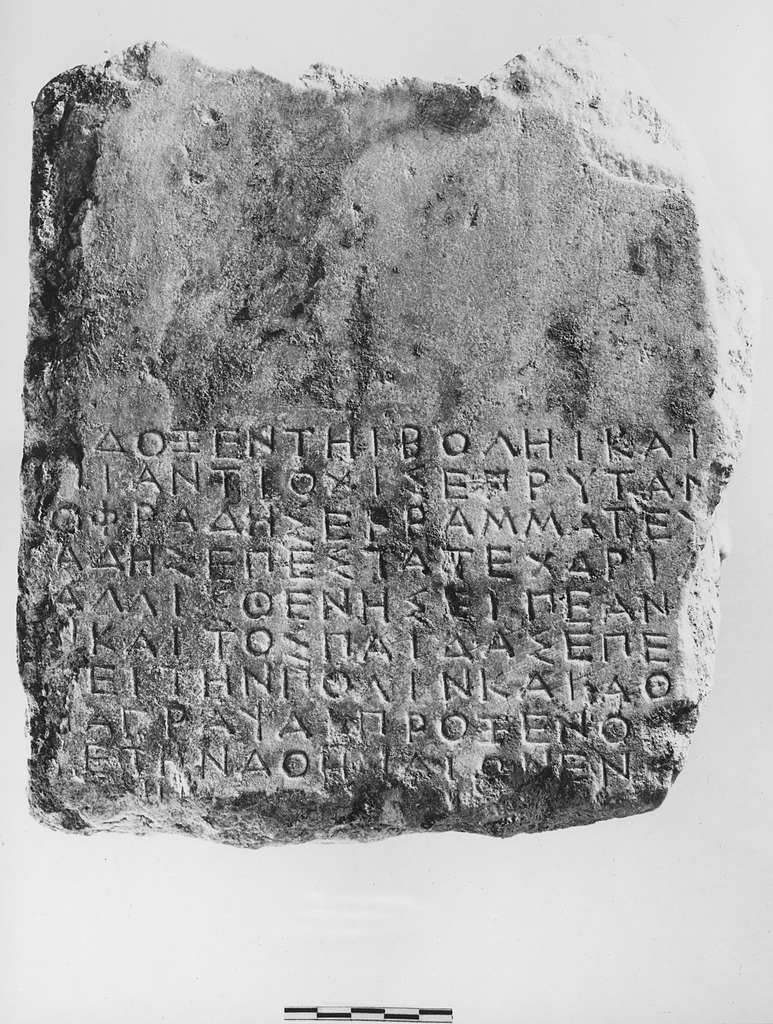 ΔΟΞΕΝΤΗΙΒΟΛΗΙΚΑΙ
ΙΑΝΤΙΟΧΙΣΕΠΡΥΤΑΝ
ΟΦΡΑΔΗΣΕΓΡΑΜΜΑΤΕΥ
ΑΔΗΣΕΠΕΣΤΑΤΕΧΑΡΙ
ΑΛΛΙΣΘΕΝΗΣΕΙΠΕΑΝ
ΚΑΙΤΟΣΠΑΙΔΑΣΕΠΕ
ΕΙΤΗΝΠΟΛΙΝΚΑΙΑΘ
ΑΓΡΑΨΑΙΠΡΟΞΕΝΟ
ΕΤΗΝΑΘΗΝΑΙΩΝΕΝ